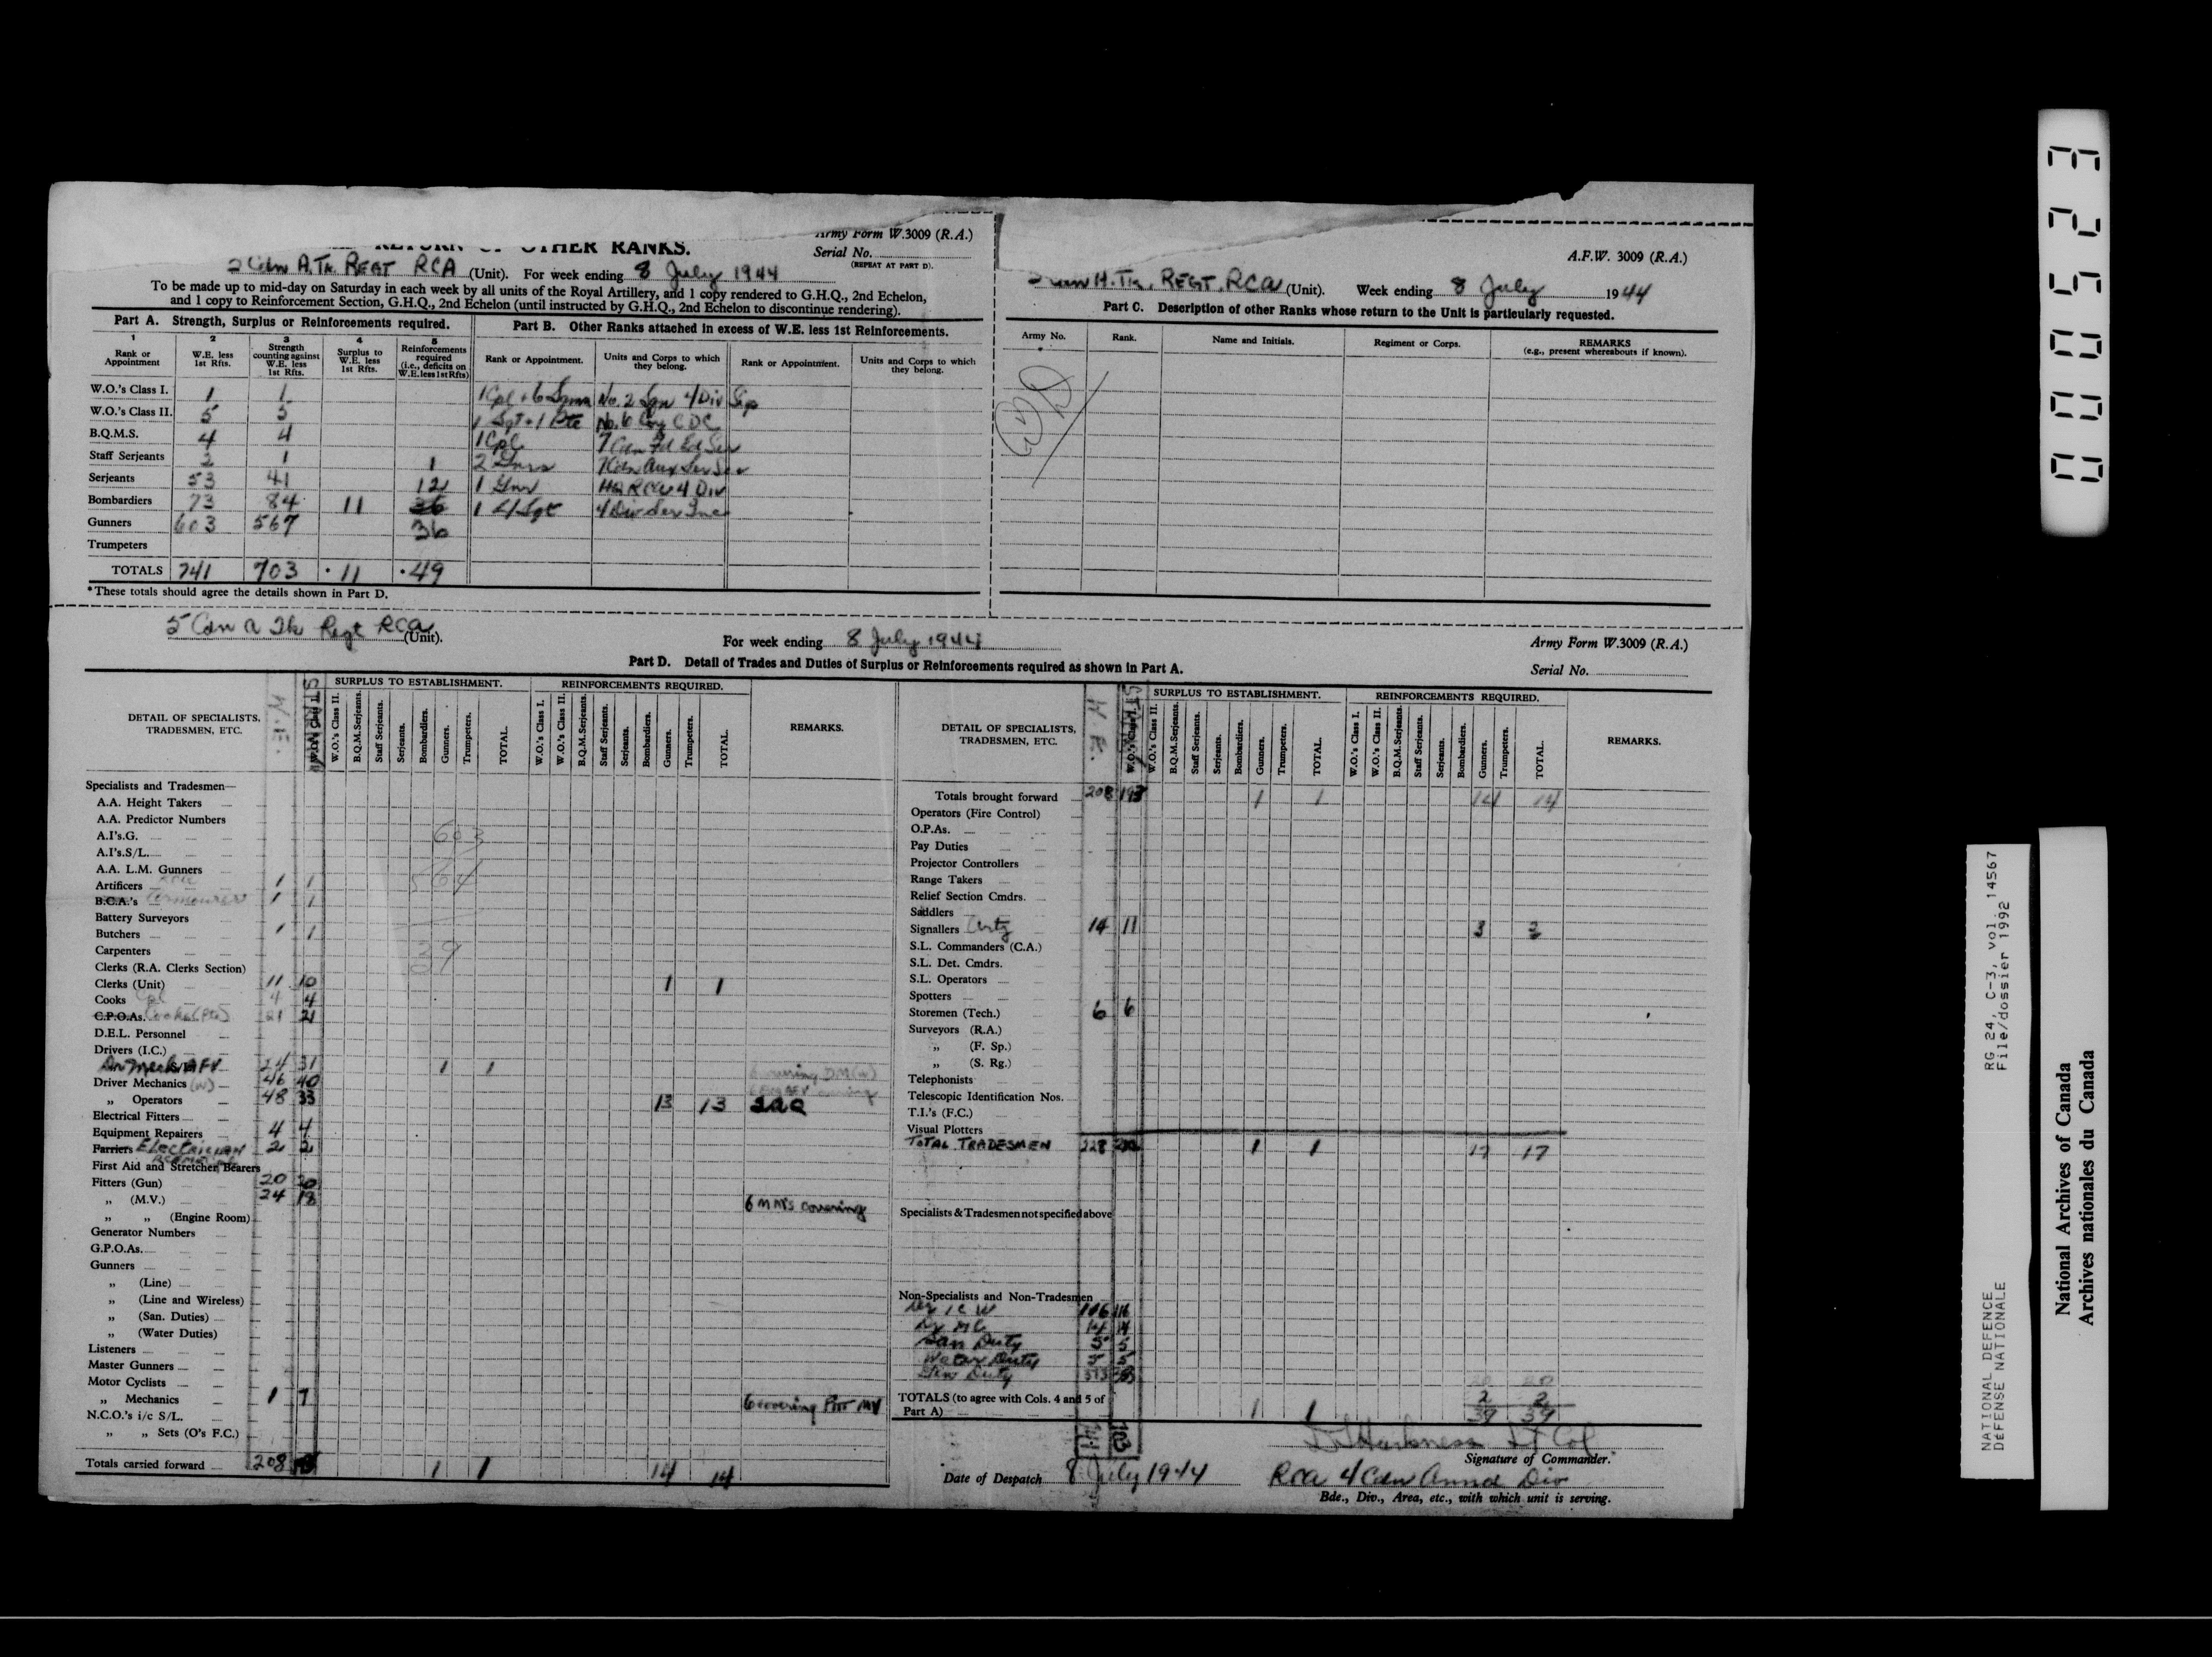 RETURN OF OTHER RANKS.
Army Form W.3009 (R.A.)
Serial No.
(REPEAT AT PART D).
Cdn A.Tk. REGT RCA (Unit). For week ending 8 July 1944
To be made up to mid-day on Saturday in each week by all units of the Royal Artillery, and 1 copy rendered to G.H.Q., 2nd Echelon,
and 1 copy to Reinforcement Section, G.H.Q., 2nd Echelon (until instructed by G.H.Q., 2nd Echelon to discontinue rendering).
Part A. Strength, Surplus or Reinforcements required.
Part B. Other Ranks attached in excess of W.E. less 1st Reinforcements.
1 2 3 4 5
Rank or Appointment
W.E. less 1st Rfts.
Strength counting against W.E. less 1st Rfts.
Surplus to W.E. less 1st Rfts.
Reinforcements required (i.e., deficits on W.E. less 1st Rfts)
Rank or Appointment.
Units and Corps to which they belong.
Rank or Appointment.
Units and Corps to which they belong.
W.O.'s Class I. 1 1
W.O.'s Class II. 5 5
B.Q.M.S. 4 4
Staff Serjeants 2 1 1
Serjeants 53 41 12
Bombardiers 73 84 11 36
Gunners 603 567 36
Trumpeters
TOTALS 741 703 · 11 · 49
1 Cpl + 6 No. 2 Sqn 4 Div Sigs
1 Sgt + 1 Pte No. 6 Coy CDC
1 Cpl 7 Cdn
2 Gnrs 7 Cdn Aux Ser Sec
1 Gnr HQ RCA 4 Div
1 L/Sgt 4 Div
*These totals should agree the details shown in Part D.
A.F.W. 3009 (R.A.)
REGT. RCA (Unit). Week ending 8 July 1944
Part C. Description of other Ranks whose return to the Unit is particularly requested.
Army No.
Rank.
Name and Initials.
Regiment or Corps.
REMARKS
(e.g., present whereabouts if known).
5 Cdn A Tk Regt RCA (Unit).
For week ending 8 July 1944
Army Form W.3009 (R.A.)
Serial No.
Part D. Detail of Trades and Duties of Surplus or Reinforcements required as shown in Part A.
DETAIL OF SPECIALISTS, TRADESMEN, ETC.
W.E.
STRENGTH
SURPLUS TO ESTABLISHMENT.
W.O.'s Class II.
B.Q.M.Serjeants.
Staff Serjeants.
Serjeants.
Bombardiers.
Gunners.
Trumpeters.
TOTAL.
REINFORCEMENTS REQUIRED.
W.O.'s Class I.
W.O.'s Class II.
B.Q.M.Serjeants.
Staff Serjeants.
Serjeants.
Bombardiers.
Gunners.
Trumpeters.
TOTAL.
REMARKS.
Specialists and Tradesmen—
A.A. Height Takers
A.A. Predictor Numbers
A.I's.G. 603
A.I's.S/L.
A.A. L.M. Gunners 564
Artificers 1 1
B.C.A.'s Armourer 1 1
Battery Surveyors
Butchers 1 1
Carpenters 39
Clerks (R.A. Clerks Section)
Clerks (Unit) 11 10 1 1
Cooks Cpl 4 4
C.P.O.As. Cooks (Pte) 21 21
D.E.L. Personnel
Drivers (I.C.)
Dvr Mech AFV 24 31 1 1
Driver Mechanics (W) 46 40 6 covering DM (W)
„ Operators 48 33 13 13
Electrical Fitters
Equipment Repairers 4 4
Farriers Electrician 2 2
First Aid and Stretcher Bearers
Fitters (Gun) 20 20
„ (M.V.) 24 18 6 MMs covering
„ „ (Engine Room)
Generator Numbers
G.P.O.As.
Gunners
„ (Line)
„ (Line and Wireless)
„ (San. Duties)
„ (Water Duties)
Listeners
Master Gunners
Motor Cyclists
„ Mechanics 1 7 6 covering Fitt MV
N.C.O.'s i/c S/L.
„ „ Sets (O's F.C.)
Totals carried forward 208 1 1 14 14
DETAIL OF SPECIALISTS, TRADESMEN, ETC.
W.E.
SURPLUS TO ESTABLISHMENT.
W.O.'s Class I.
W.O.'s Class II.
B.Q.M.Serjeants.
Staff Serjeants.
Serjeants.
Bombardiers.
Gunners.
Trumpeters.
TOTAL.
REINFORCEMENTS REQUIRED.
W.O.'s Class I.
W.O.'s Class II.
B.Q.M.Serjeants.
Staff Serjeants.
Serjeants.
Bombardiers.
Gunners.
Trumpeters.
TOTAL.
REMARKS.
Totals brought forward 208 193 1 1 14 14
Operators (Fire Control)
O.P.As.
Pay Duties
Projector Controllers
Range Takers
Relief Section Cmdrs.
Saddlers
Signallers Arty 14 11 3 3
S.L. Commanders (C.A.)
S.L. Det. Cmdrs.
S.L. Operators
Spotters
Storemen (Tech.) 6 6
Surveyors (R.A.)
„ (F. Sp.)
„ (S. Rg.)
Telephonists
Telescopic Identification Nos.
T.I.'s (F.C.)
Visual Plotters
TOTAL TRADESMEN 228 1 1 17 17
Specialists & Tradesmen not specified above
Non-Specialists and Non-Tradesmen
Dvr I C W 116 116
Dvr MC 14 14
San Duty 5 5
Water Duty 5 5
Gen Duty 373
20 20
2 2
TOTALS (to agree with Cols. 4 and 5 of Part A) 741 703 1 1 39 39
Harkness Lt Col
Signature of Commander.
Date of Despatch 8 July 1944
RCA 4 Cdn Armd Div
Bde., Div., Area, etc., with which unit is serving.
000523
RG 24, C-3, vol. 14567
File/dossier 1992
NATIONAL DEFENCE
DEFENSE NATIONALE
National Archives of Canada
Archives nationales du Canada